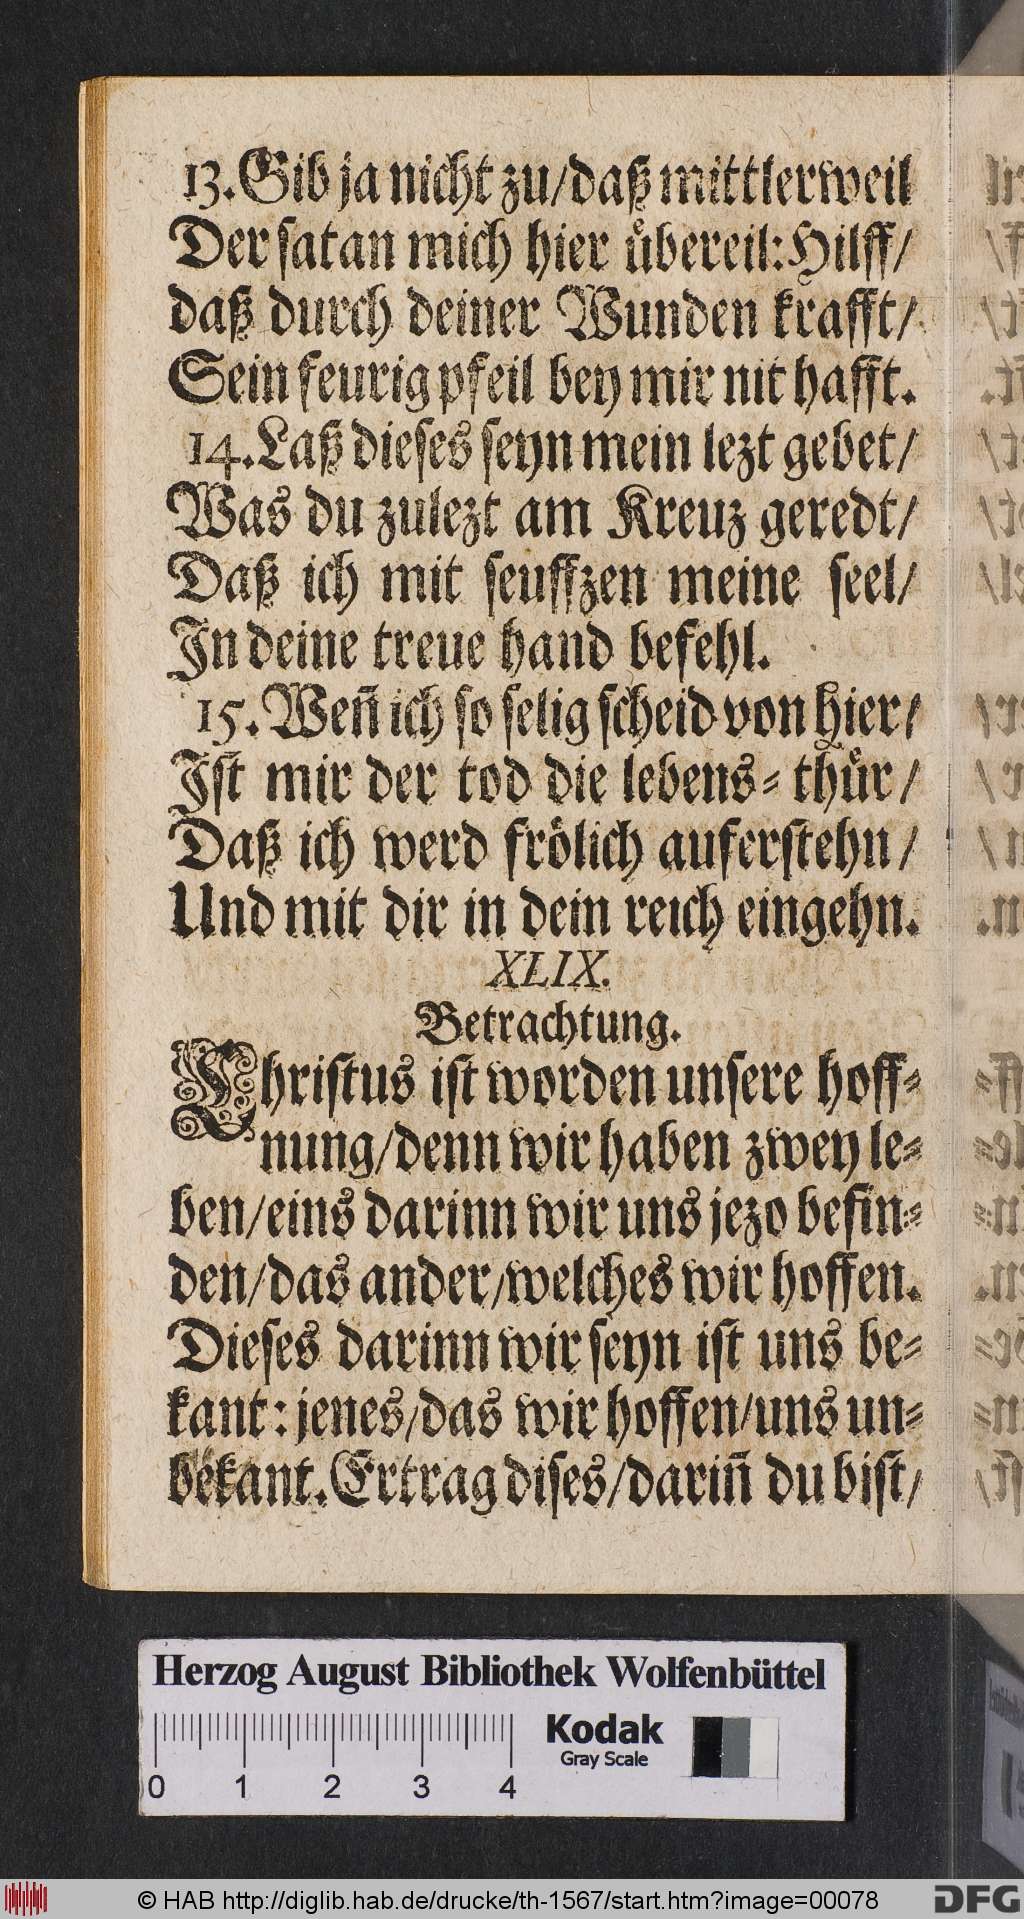 13. Gib ja nicht zu/daß mittlerweil
Der satan mich hier uͤbereil: Hilff/
daß durch deiner Wunden krafft/
Sein feurig pfeil bey mir nit hafft.
14. Laß dieses seyn mein lezt gebet/
Was du zulezt am Kreuz geredt/
Daß ich mit seuffzen meine seel/
In deine treue hand befehl.
15. Weñ ich so selig scheid von hier/
Ist mir der tod die lebens-thuͤr/
Daß ich werd froͤlich auferstehn/
Und mit dir in dein reich eingehn.
XLIX.
Betrachtung.
Christus ist worden unsere hoff-
nung/denn wir haben zwey le-
ben/eins darinn wir uns jezo befin-
den/das ander/welches wir hoffen.
Dieses darinn wir seyn ist uns be-
kant: jenes/das wir hoffen/uns un-
bekant. Ertrag dises/dariñ du bist/
Herzog August Bibliothek Wolfenbüttel
Kodak
Gray Scale
0 1 2 3 4
© HAB http://diglib.hab.de/drucke/th-1567/start.htm?image=00078
DFG